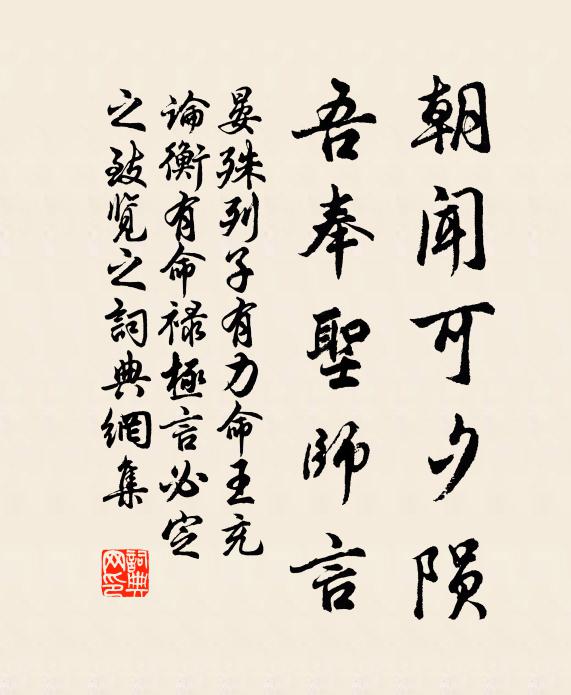 朝闻可夕陨
吾奉聖師言
晏殊列子有力命王充
论衡有命禄極言必定
之致览之詞典網集
詞典网印